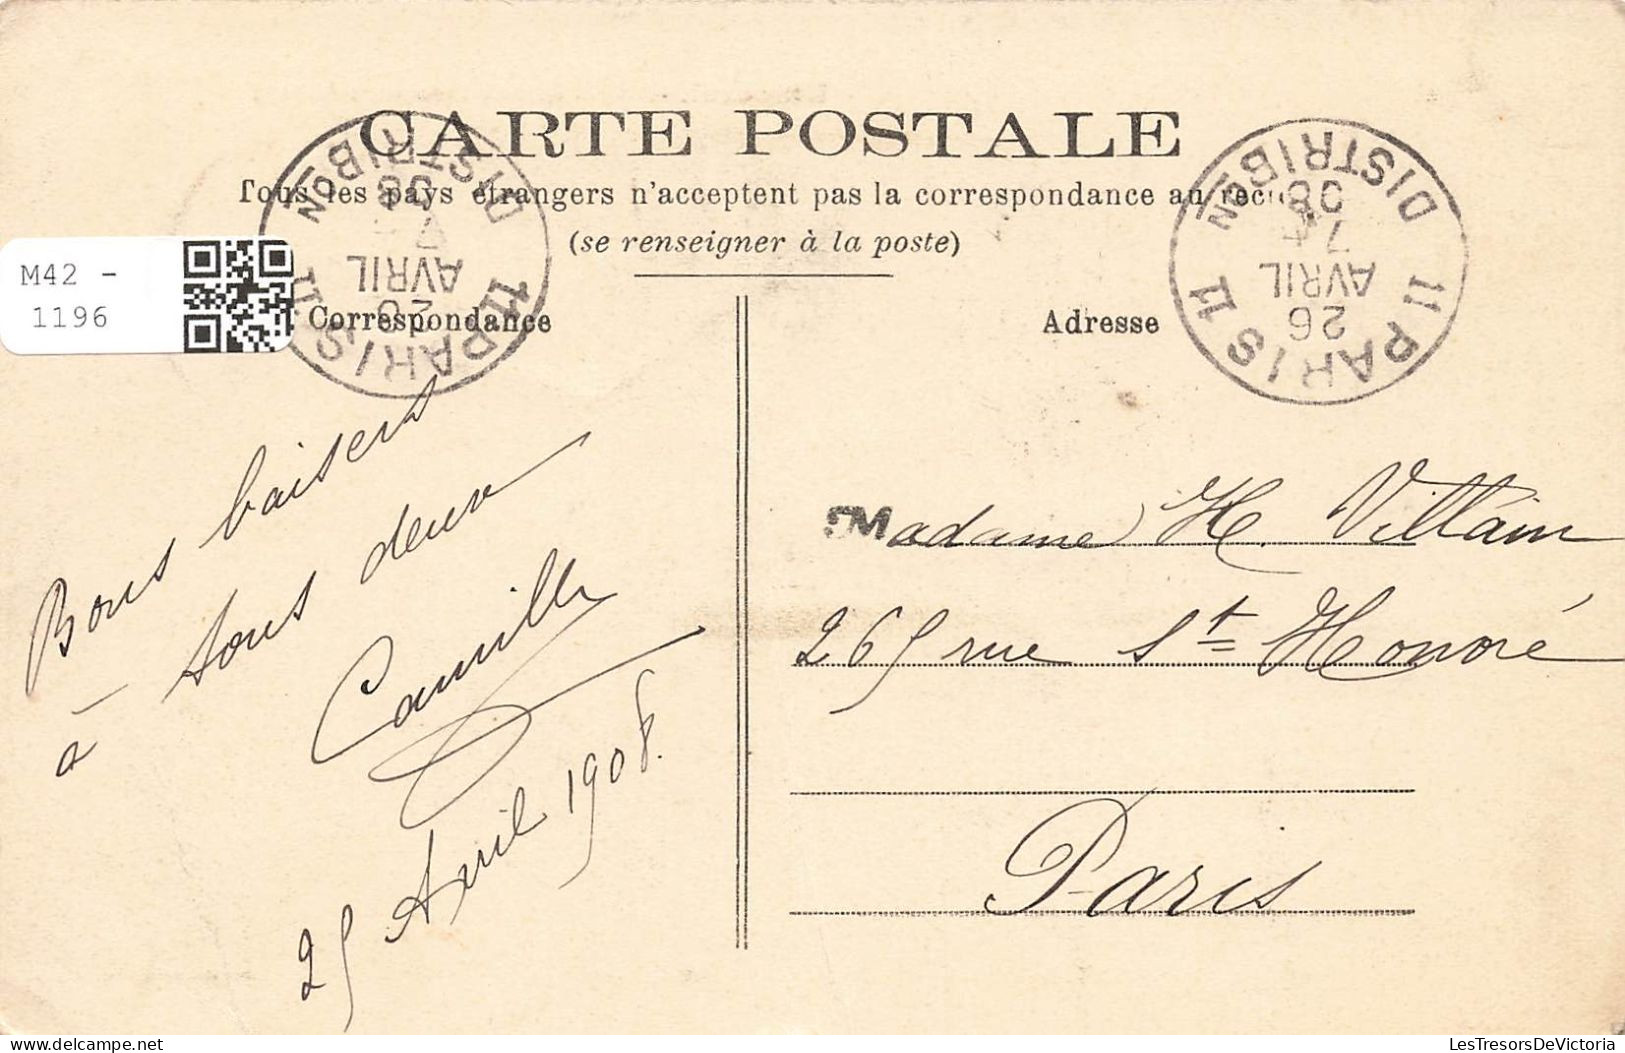 CARTE POSTALE
Tous les pays étrangers n'acceptent pas la correspondance au recto
(se renseigner à la poste)
M42 -
1196
Correspondance
Adresse
PARIS 11 DISTRIBON
26
AVRIL
08
PARIS 11 DISTRIBON 11
26
AVRIL
08
Bons baisers
à tous deux
Camille
25 Avril 1908.
Madame H. Villain
265 rue St Honoré
Paris
LesTresorsDeVictoria
www.delcampe.net